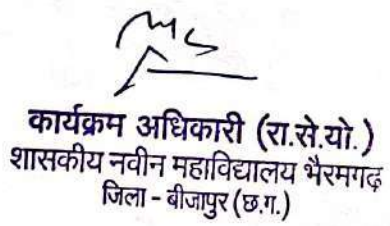 कार्यक्रम अधिकारी (रा.से.यो.)
शासकीय नवीन महाविद्यालय भैरमगढ़
जिला - बीजापुर (छ.ग.)